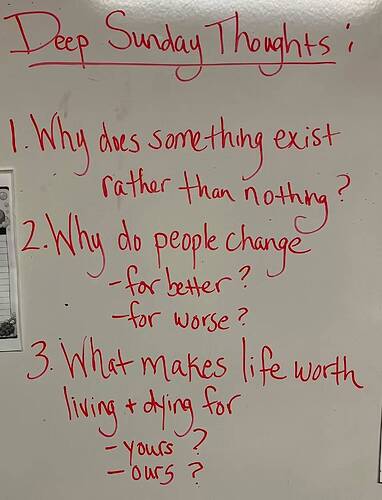 Deep Sunday Thoughts:
1. Why does something exist
rather than nothing?
2. Why do people change
- for better?
- for worse?
3. What makes life worth
living + dying for
- yours?
- ours?